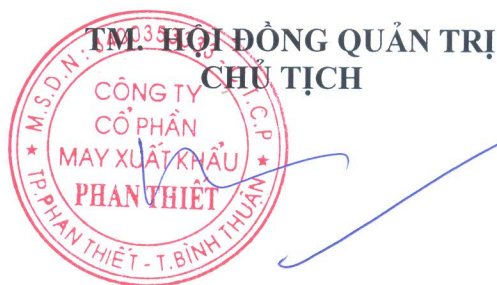 TM. HỘI ĐỒNG QUẢN TRỊ
CHỦ TỊCH
CÔNG TY
CỔ PHẦN
MAY XUẤT KHẨU
PHAN THIẾT
TP.PHAN THIẾT - T.BÌNH THUẬN